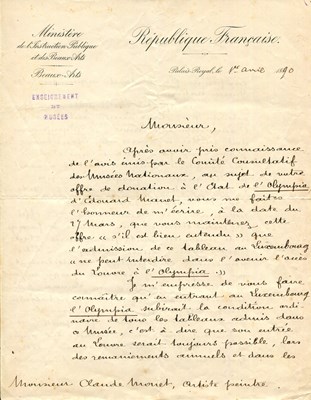 Ministère
de l'Instruction Publique
et des Beaux-Arts
Beaux-Arts
République Française.
Palais-Royal, le 1er avril 1890
ENSEIGNEMENT
MUSÉES
Monsieur,
Après avoir pris connaissance
de l'avis émis par le Comité Consultatif
des Musées Nationaux, au sujet de votre
offre de donation à l'Etat de l'Olympia,
d'Edouard Manet, vous me faites
l'honneur de m'écrire, à la date du
27 Mars, que vous maintenez cette
offre "s'il est bien entendu" que
l'admission de ce tableau au Luxembourg
"ne peut interdire dans l'avenir l'accès
du Louvre à l'Olympia."
Je m'empresse de vous faire
connaître qu'en entrant au Luxembourg
l'Olympia subirait la condition ordi-
naire de tous les tableaux admis dans
ce Musée, c'est à dire que son entrée
au Louvre serait toujours possible, lors
des remaniements annuels et dans les
Monsieur Claude Monet, Artiste peintre.